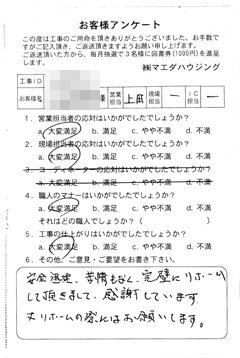 お客様アンケート
この度は工事のご用命を頂きありがとうございました。お手数で
すがご記入頂き、ご返送頂きますようお願い申し上げます。
ご返送頂いた方から、毎月抽選で3名様に図書券(1000円)を進呈
します。
㈱マエダハウジング
工事ID
お客様名 様 営業担当 上田 現場担当 ー IC担当 ー
1. 営業担当者の応対はいかがでしたでしょうか?
a. 大変満足 b. 満足 c. やや不満 d. 不満
2. 現場担当者の応対はいかがでしたでしょうか?
a. 大変満足 b. 満足 c. やや不満 d. 不満
3. コーディネーターの応対はいかがでしたでしょうか?
a. 大変満足 b. 満足 c. やや不満 d. 不満
4. 職人のマナーはいかがでしたでしょうか?
a. 大変満足 b. 満足 c. やや不満 d. 不満
それはどの職人でしょうか?( )
5. 工事の仕上がりはいかがでしたでしょうか?
a. 大変満足 b. 満足 c. やや不満 d. 不満
6. その他、ご意見・ご要望をお書き下さい。
安全迅速、苦情もなく、完璧にリホーム
して頂きまして、感謝しています
又リホームの際にはお願いします。